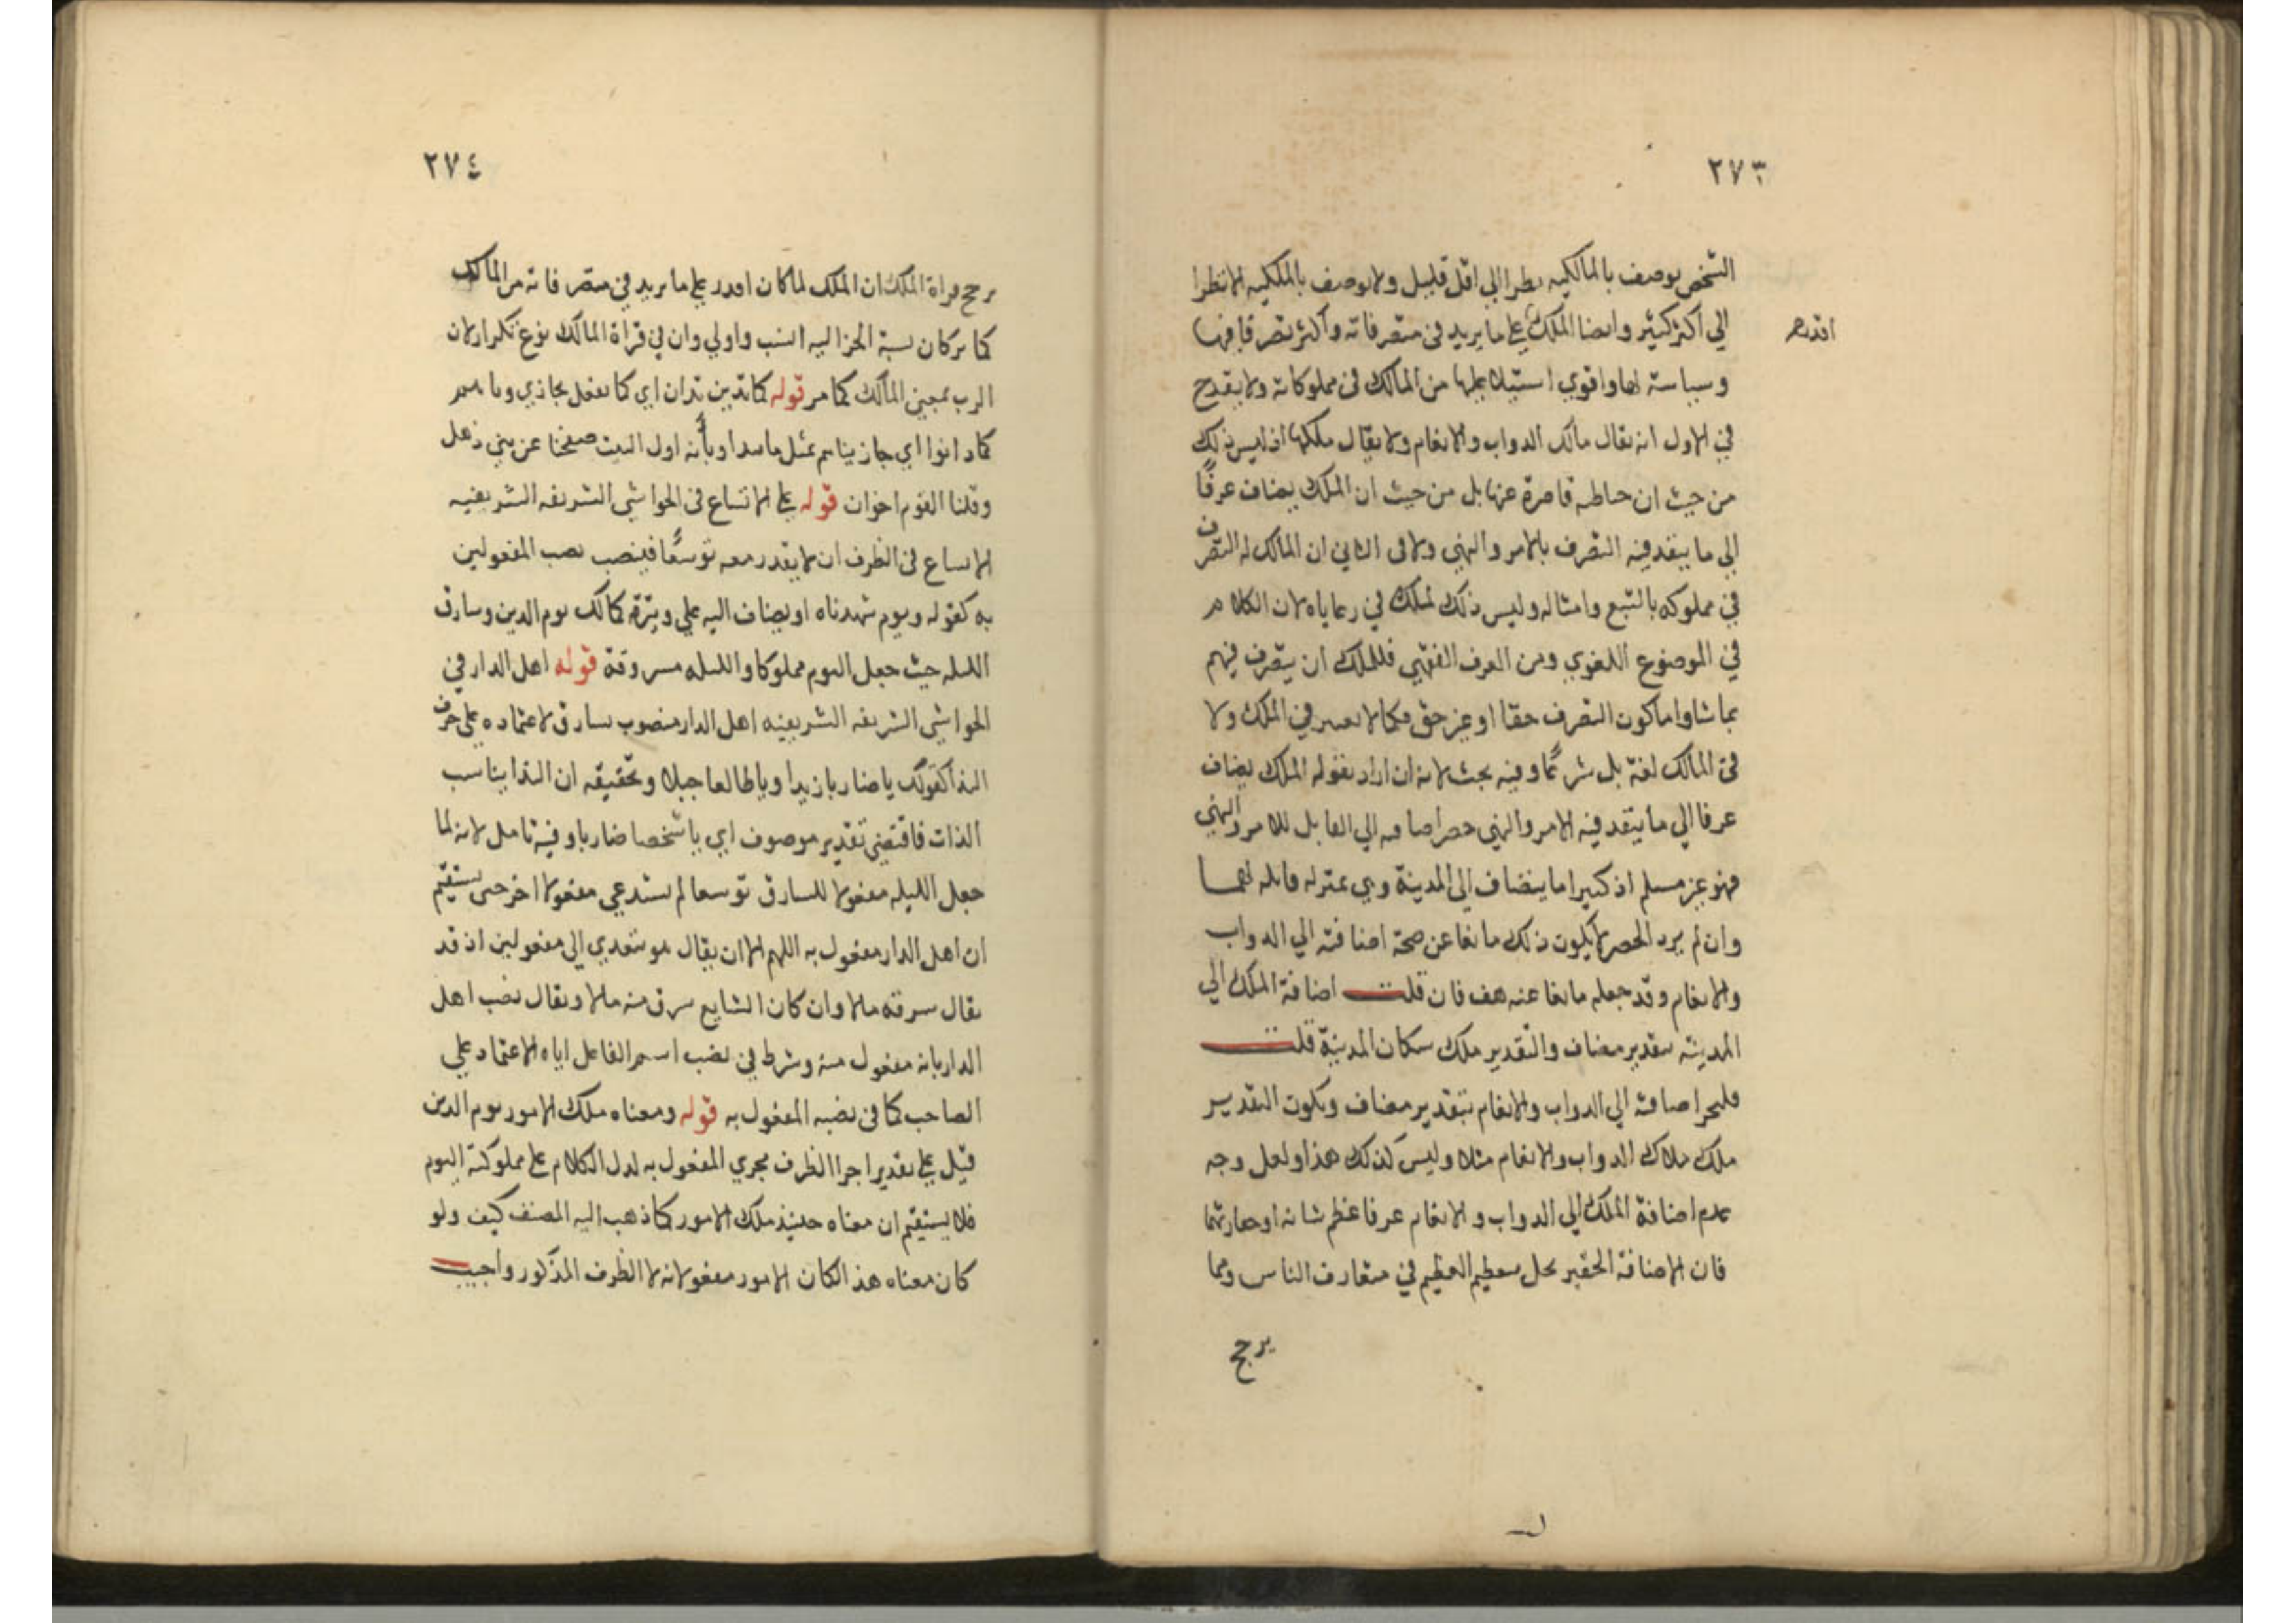 ٢٧٣
الشخص يوصف بالمالكيه نظرا الي اقل قليل ولا يوصف بالملكيه الا نظرا
الي اكثر كثير وايضا الملك علي ما يريد في متصرفاته واكثر تصرفا فيها
اقدر صح
وسياسة لها واقوي استيلا عليها من المالك في مملوكاته ولا يقدح
في الاول انه يقال مالك الدواب والانعام ولا يقال ملكها اذ ليس ذلك
من حيث ان حاطه قاصرة عنها بل من حيث ان الملك يضاف عرفًا
الي ما ينفد فيه التصرف بالامر والنهي ولا في الثاني ان المالك له التصرف
في مملوكه بالتبع وامثاله وليس ذلك لملك في رعاياه لان الكلام
في الموضوع اللغوي ومن العرف الفقهي فللملك ان يتصرف فيهم
بما شا واما كون التصرف حقا او غير حق فكما لا يعتبر في الملك ولا
في المالك لغة بل شرعًا وفيه بحث لانه ان اراد بقوله الملك يضاف
عرفا الي ما ينفد فيه الامر والنهي حصر اضافه الي القابل للامر والنهي
فهو غير مسلم اذ كثيرا ما ينضاف الي المدينة وهي غير قابله لهما
وان لم يرد الحصر لا يكون ذلك مانعا عن صحة اضافته الي الدواب
والانعام وقد جعله مانعا عنه هف فان قلت اضافة الملك الي
المدينه بتقدير مضاف والتقدير ملك سكان المدينة قلت
فليجز اضافته الي الدواب والانعام بتقدير مضاف ويكون التقدير
ملك ملاك الدواب والانعام مثلا وليس كذلك هذا ولعل وجه
عدم اضافة الملك الي الدواب والانعام عرفا عظم شانه او حقارتها
فان الاضافة الحقير يخل بتعظيم العظيم في متعارف الناس ومما
يرجح
٢٧٤
يرجح قراة الملك ان الملك لما كان اقدر علي ما يريد في متصرفاته من المالك
كما مر كان نسبة الجزا اليه انسب واولي وان في قراة المالك نوع تكرار لان
الرب بمعني المالك كما مر قوله كما تدين تدان اي كما تفعل تجازي
كما دانوا اي جازيناهم بمثل ما وبأنه اول البيت صفحنا عن بني ذهل
وقلنا القوم اخوان قوله علي الاتساع في الحواشي الشريفه الشريفيه
الاتساع في الظرف ان لا يقدر معه توسعًا فينصب نصب المفعولين
به كقوله ويوم شهدناه او يضاف اليه علي وتيرة كمالك يوم الدين وسارق
الليله حيث جعل اليوم مملوكا والليله مسروقة قوله اهل الدار في
الحواشي الشريفه الشريفيه اهل الدار منصوب بسارق لاعتماده علي حرف
الندا كقولك يا ضاربا زيدا ويا طالعا جبلا وتحقيقه ان الندا يناسب
الذات فاقتضي تقدير موصوف اي يا شخصا ضاربا وفيه تامل لانه لما
جعل الليله مفعولا للسارق توسعا لم يستدعي مفعولا اخر حتي يستقيم
ان اهل الدار مفعول به اللهم الا ان يقال هو متعدي الي مفعولين اذ قد
يقال سرقه مالا وان كان الشايع سرق منه مالا ويقال نصب اهل
الدار بانه مفعول منه وشرط في نصب اسم الفاعل اياه الاعتماد علي
الصاحب كما في نصبه المفعول به قوله ومعناه ملك الامور يوم الدين
قيل علي تقدير اجرا الظرف مجري المفعول به لدل الكلام علي مملوكية اليوم
فلا يستقيم ان معناه حينيذ ملك الامور كما ذهب اليه المصنف كيف ولو
كان معناه هذا لكان الامور مفعولا نه لا الظرف المذكور واجيب